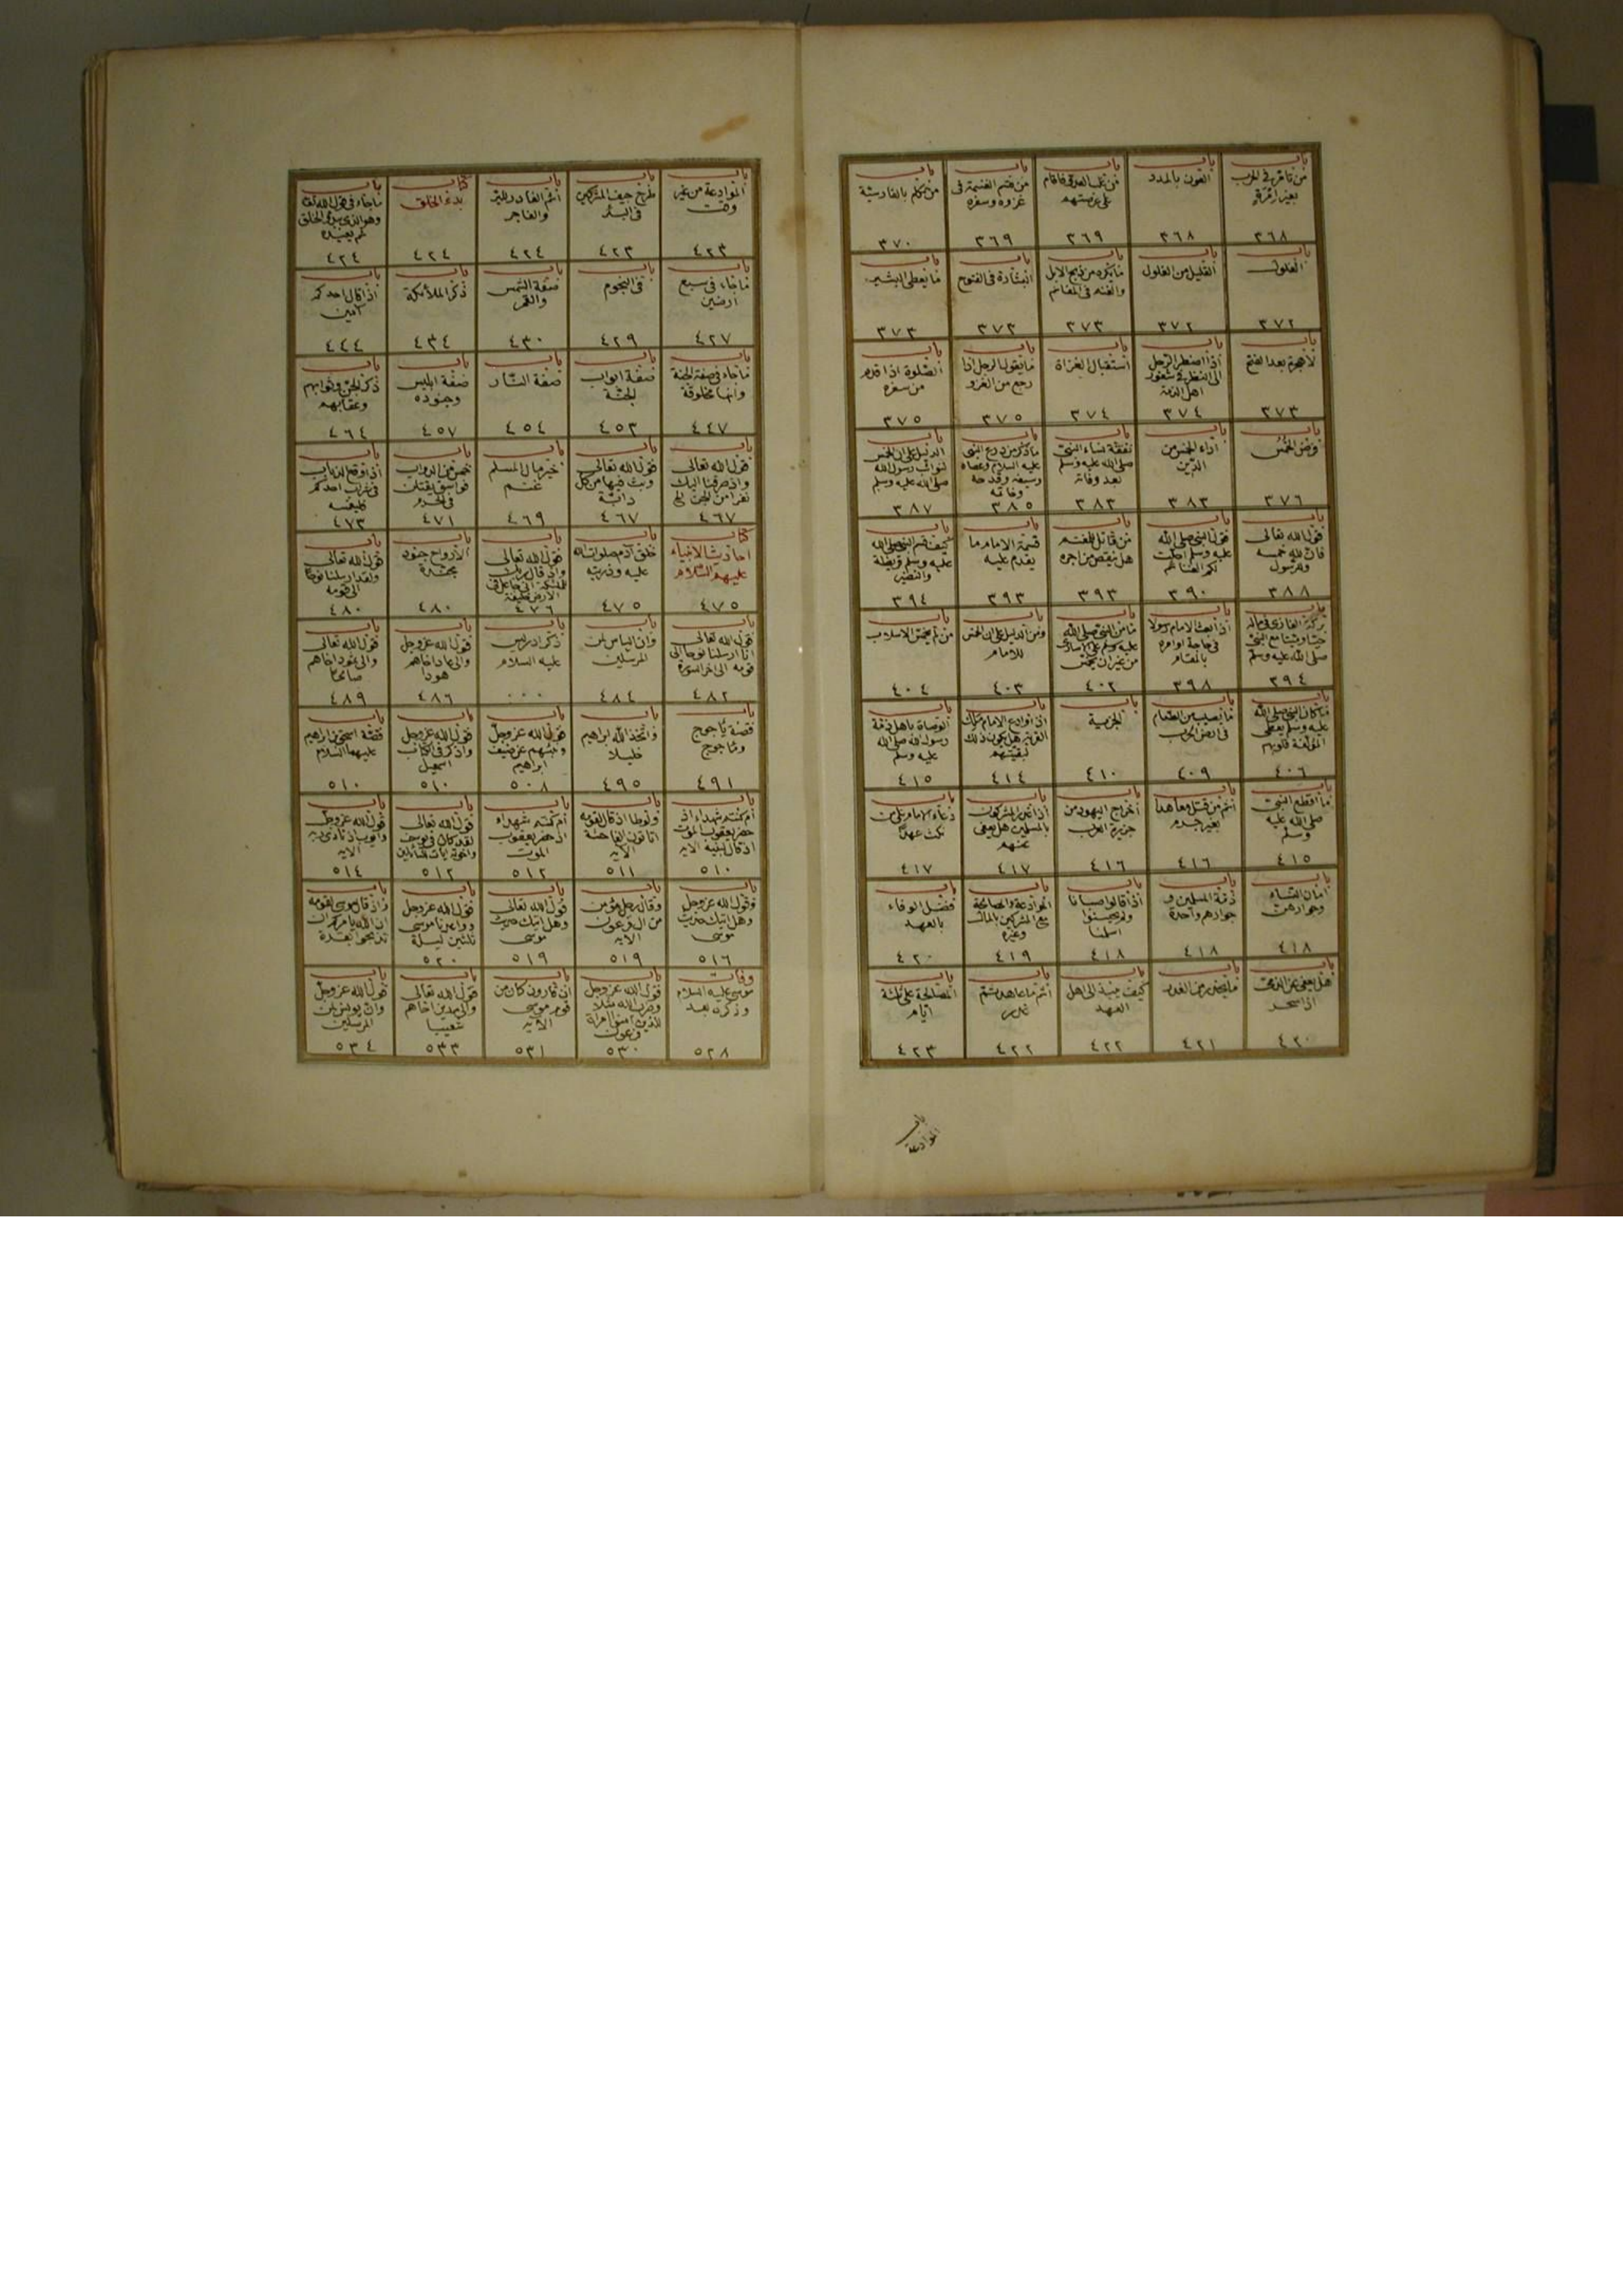 باب
من تأمر في الحرب
بغير امرة
٣٦٨
باب
العون بالمدد
٣٦٨
باب
من غلب العدو فاقام
على عرصتهم
٣٦٩
باب
من قسم الغنيمة في
غزوه وسفره
٣٦٩
باب
من تكلم بالفارسية
٣٧٠
باب
الغلول
٣٧٢
باب
القليل من الغلول
٣٧٢
باب
ما يكره من ذبح الابل
والغنم في المغانم
٣٧٣
باب
البشارة في الفتوح
٣٧٣
باب
ما يعطى البشير
٣٧٣
باب
لا هجرة بعد الفتح
٣٧٣
باب
اذا اضطر الرجل
الى النظر في شعور
اهل الذمة
٣٧٤
باب
استقبال الغزاة
٣٧٤
باب
ما يقول الرجل اذا
رجع من الغزو
٣٧٥
باب
الصلوة اذا قدم
من سفره
٣٧٥
باب
فرض الخمس
٣٧٦
باب
اداء الخمس من
الدين
٣٨٣
باب
نفقة نساء النبي
صلى الله عليه وسلم
بعد وفاته
٣٨٣
باب
ما ذكر من درع النبي
عليه السلام وعصاه
وسيفه وقدحه
وخاتمه
٣٨٥
باب
الدليل على ان الخمس
لنوائب رسول الله
صلى الله عليه وسلم
٣٨٧
باب
قول الله تعالى
فان لله خمسه
وللرسول
٣٨٨
باب
قول النبي صلى الله
عليه وسلم احلت
لكم الغنائم
٣٩٠
باب
من قاتل للمغنم
هل ينقص من اجره
٣٩٣
باب
قسمة الامام ما
يقدم عليه
٣٩٣
باب
كيف قسم النبي صلى الله
عليه وسلم قريظة
والنضير
٣٩٤
باب
بركة الغازي في ماله
حيا وميتا مع النبي
صلى الله عليه وسلم
٣٩٤
باب
اذا بعث الامام رسولا
في حاجة او امره
بالمقام
٣٩٨
باب
ما من النبي صلى الله
عليه وسلم على الاسارى
من غير ان يخمس
٤٠٢
باب
ومن الدليل على ان الخمس
للامام
٤٠٣
باب
من لم يخمس الاسلاب
٤٠٤
باب
ما كان النبي صلى الله
عليه وسلم يعطي
المؤلفة قلوبهم
٤٠٦
باب
ما يصيب من الطعام
في ارض الحرب
٤٠٩
باب
الجزية
٤١٠
باب
اذا وادع الامام ملك
القرية هل يكون ذلك
لبقيتهم
٤١٤
باب
الوصاة باهل ذمة
رسول الله صلى الله
عليه وسلم
٤١٥
باب
ما اقطع النبي
صلى الله عليه
وسلم
٤١٥
باب
اثم من قتل معاهدا
بغير جرم
٤١٦
باب
اخراج اليهود من
جزيرة العرب
٤١٦
باب
اذا غدر المشركون
بالمسلمين هل يعفى
عنهم
٤١٧
باب
دعاء الامام على من
نكث عهدا
٤١٧
باب
امان النساء
وجوارهن
٤١٨
باب
ذمة المسلمين و
جوارهم واحدة
٤١٨
باب
اذا قالوا صبانا
ولم يحسنوا
اسلمنا
٤١٨
باب
الموادعة والمصالحة
مع المشركين بالمال
وغيره
٤١٩
باب
فضل الوفاء
بالعهد
٤٢٠
باب
هل يعفى عن الذمي
اذا سحر
٤٢٠
باب
ما يحذر من الغدر
٤٢١
باب
كيف ينبذ الى اهل
العهد
٤٢٢
باب
اثم من عاهد ثم
غدر
٤٢٢
باب
المصالحة على ثلثة
ايام
٤٢٣
باب
الموادعة
باب
الموادعة من غير
وقت
٤٢٣
باب
طرح جيف المشركين
في البئر
٤٢٣
باب
اثم الغادر للبر
والفاجر
٤٢٤
كتاب
بدء الخلق
٤٢٤
باب
ما جاء في قول الله تعالى
وهو الذي يبدؤ الخلق
ثم يعيده
٤٢٤
باب
ما جاء في سبع
ارضين
٤٢٧
باب
في النجوم
٤٢٩
باب
صفة الشمس
والقمر
٤٣٠
باب
ذكر الملائكة
٤٣٤
باب
اذا قال احدكم
آمين
٤٤٤
باب
ما جاء في صفة الجنة
وانها مخلوقة
٤٤٧
باب
صفة ابواب
الجنة
٤٥٣
باب
صفة النار
٤٥٤
باب
صفة ابليس
وجنوده
٤٥٧
باب
ذكر الجن وثوابهم
وعقابهم
٤٦٤
باب
قول الله تعالى
واذ صرفنا اليك
نفرا من الجن الخ
٤٦٧
باب
قول الله تعالى
وبث فيها من كل
دابة
٤٦٧
باب
خير مال المسلم
غنم
٤٦٩
باب
خمس من الدواب
فواسق يقتلن
في الحرم
٤٧١
باب
اذا وقع الذباب
في شراب احدكم
فليغمسه
٤٧٣
كتاب
احاديث الانبياء
عليهم السلام
٤٧٥
باب
خلق آدم صلوات الله
عليه وذريته
٤٧٥
باب
قول الله تعالى
واذ قال ربك
للملئكة اني جاعل في
الارض خليفة
٤٧٦
باب
الارواح جنود
مجندة
٤٨٠
باب
قول الله تعالى
ولقد ارسلنا نوحا
الى قومه
٤٨٠
باب
قول الله تعالى
انا ارسلنا نوحا الى
قومه الى اخر السورة
٤٨٢
باب
وان الياس لمن
المرسلين
٤٨٤
باب
ذكر ادريس
عليه السلام
٠٠٠
باب
قول الله عز وجل
والى عاد اخاهم
هودا
٤٨٦
باب
قول الله تعالى
والى ثمود اخاهم
صالحا
٤٨٩
باب
قصة ياجوج
وماجوج
٤٩١
باب
واتخذ الله ابراهيم
خليلا
٤٩٥
باب
قول الله عز وجل
ونبئهم عن ضيف
ابراهيم
٥٠٨
باب
قول الله عز وجل
واذكر في الكتاب
اسمعيل
٥١٠
باب
قصة اسحق بن ابراهيم
عليهما السلام
٥١٠
باب
ام كنتم شهداء اذ
حضر يعقوب الموت
اذ قال لبنيه الايه
٥١٠
باب
ولوطا اذ قال لقومه
اتاتون الفاحشة
الايه
٥١١
باب
ام كنتم شهداء
اذ حضر يعقوب
الموت
٥١٢
باب
قول الله تعالى
لقد كان في يوسف
واخوته ايات للسائلين
٥١٢
باب
قول الله عز وجل
وايوب اذ نادى ربه
الايه
٥١٤
باب
وقول الله عز وجل
وهل اتيك حديث
موسى
٥١٦
باب
وقال رجل مؤمن
من ال فرعون
الايه
٥١٩
باب
قول الله تعالى
وهل اتيك حديث
موسى
٥١٩
باب
قول الله عز وجل
وواعدنا موسى
ثلثين ليلة
٥٢٠
باب
واذ قال موسى لقومه
ان الله يامركم ان
تذبحوا بقرة
وفات
موسى عليه السلام
وذكره بعد
٥٢٨
باب
قول الله عز وجل
وضرب الله مثلا
للذين امنوا امراة
فرعون
٥٣٠
باب
ان قارون كان من
قوم موسى
الايه
٥٣١
باب
قول الله تعالى
والى مدين اخاهم
شعيبا
٥٣٣
باب
قول الله عز وجل
وان يونس لمن
المرسلين
٥٣٤